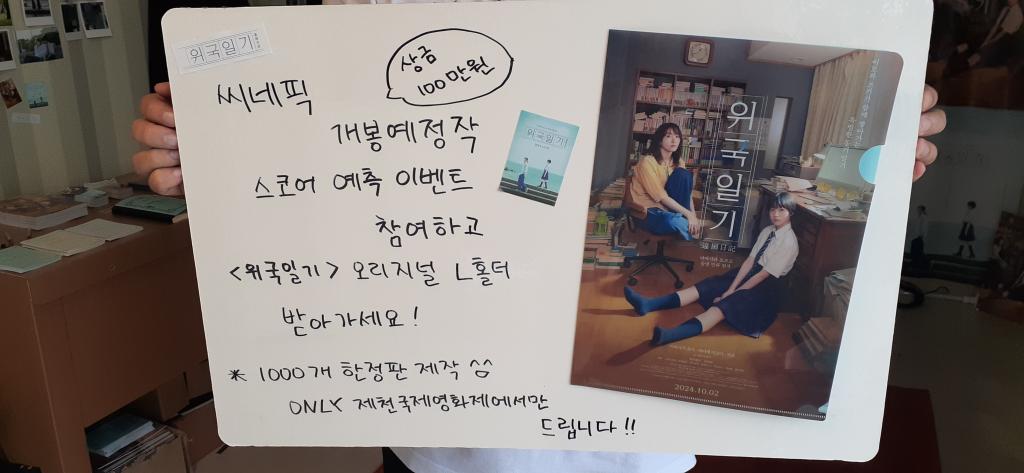 위국일기
상금
100만원
씨네픽
개봉예정작
스코어 예측 이벤트
참여하고
<위국일기> 오리지널 L홀더
받아가세요!
* 1000개 한정판 제작 슴
ONLY 제천국제영화제에서만
드립니다!!
위국일기
위국일기
違国日記
2024.10.02